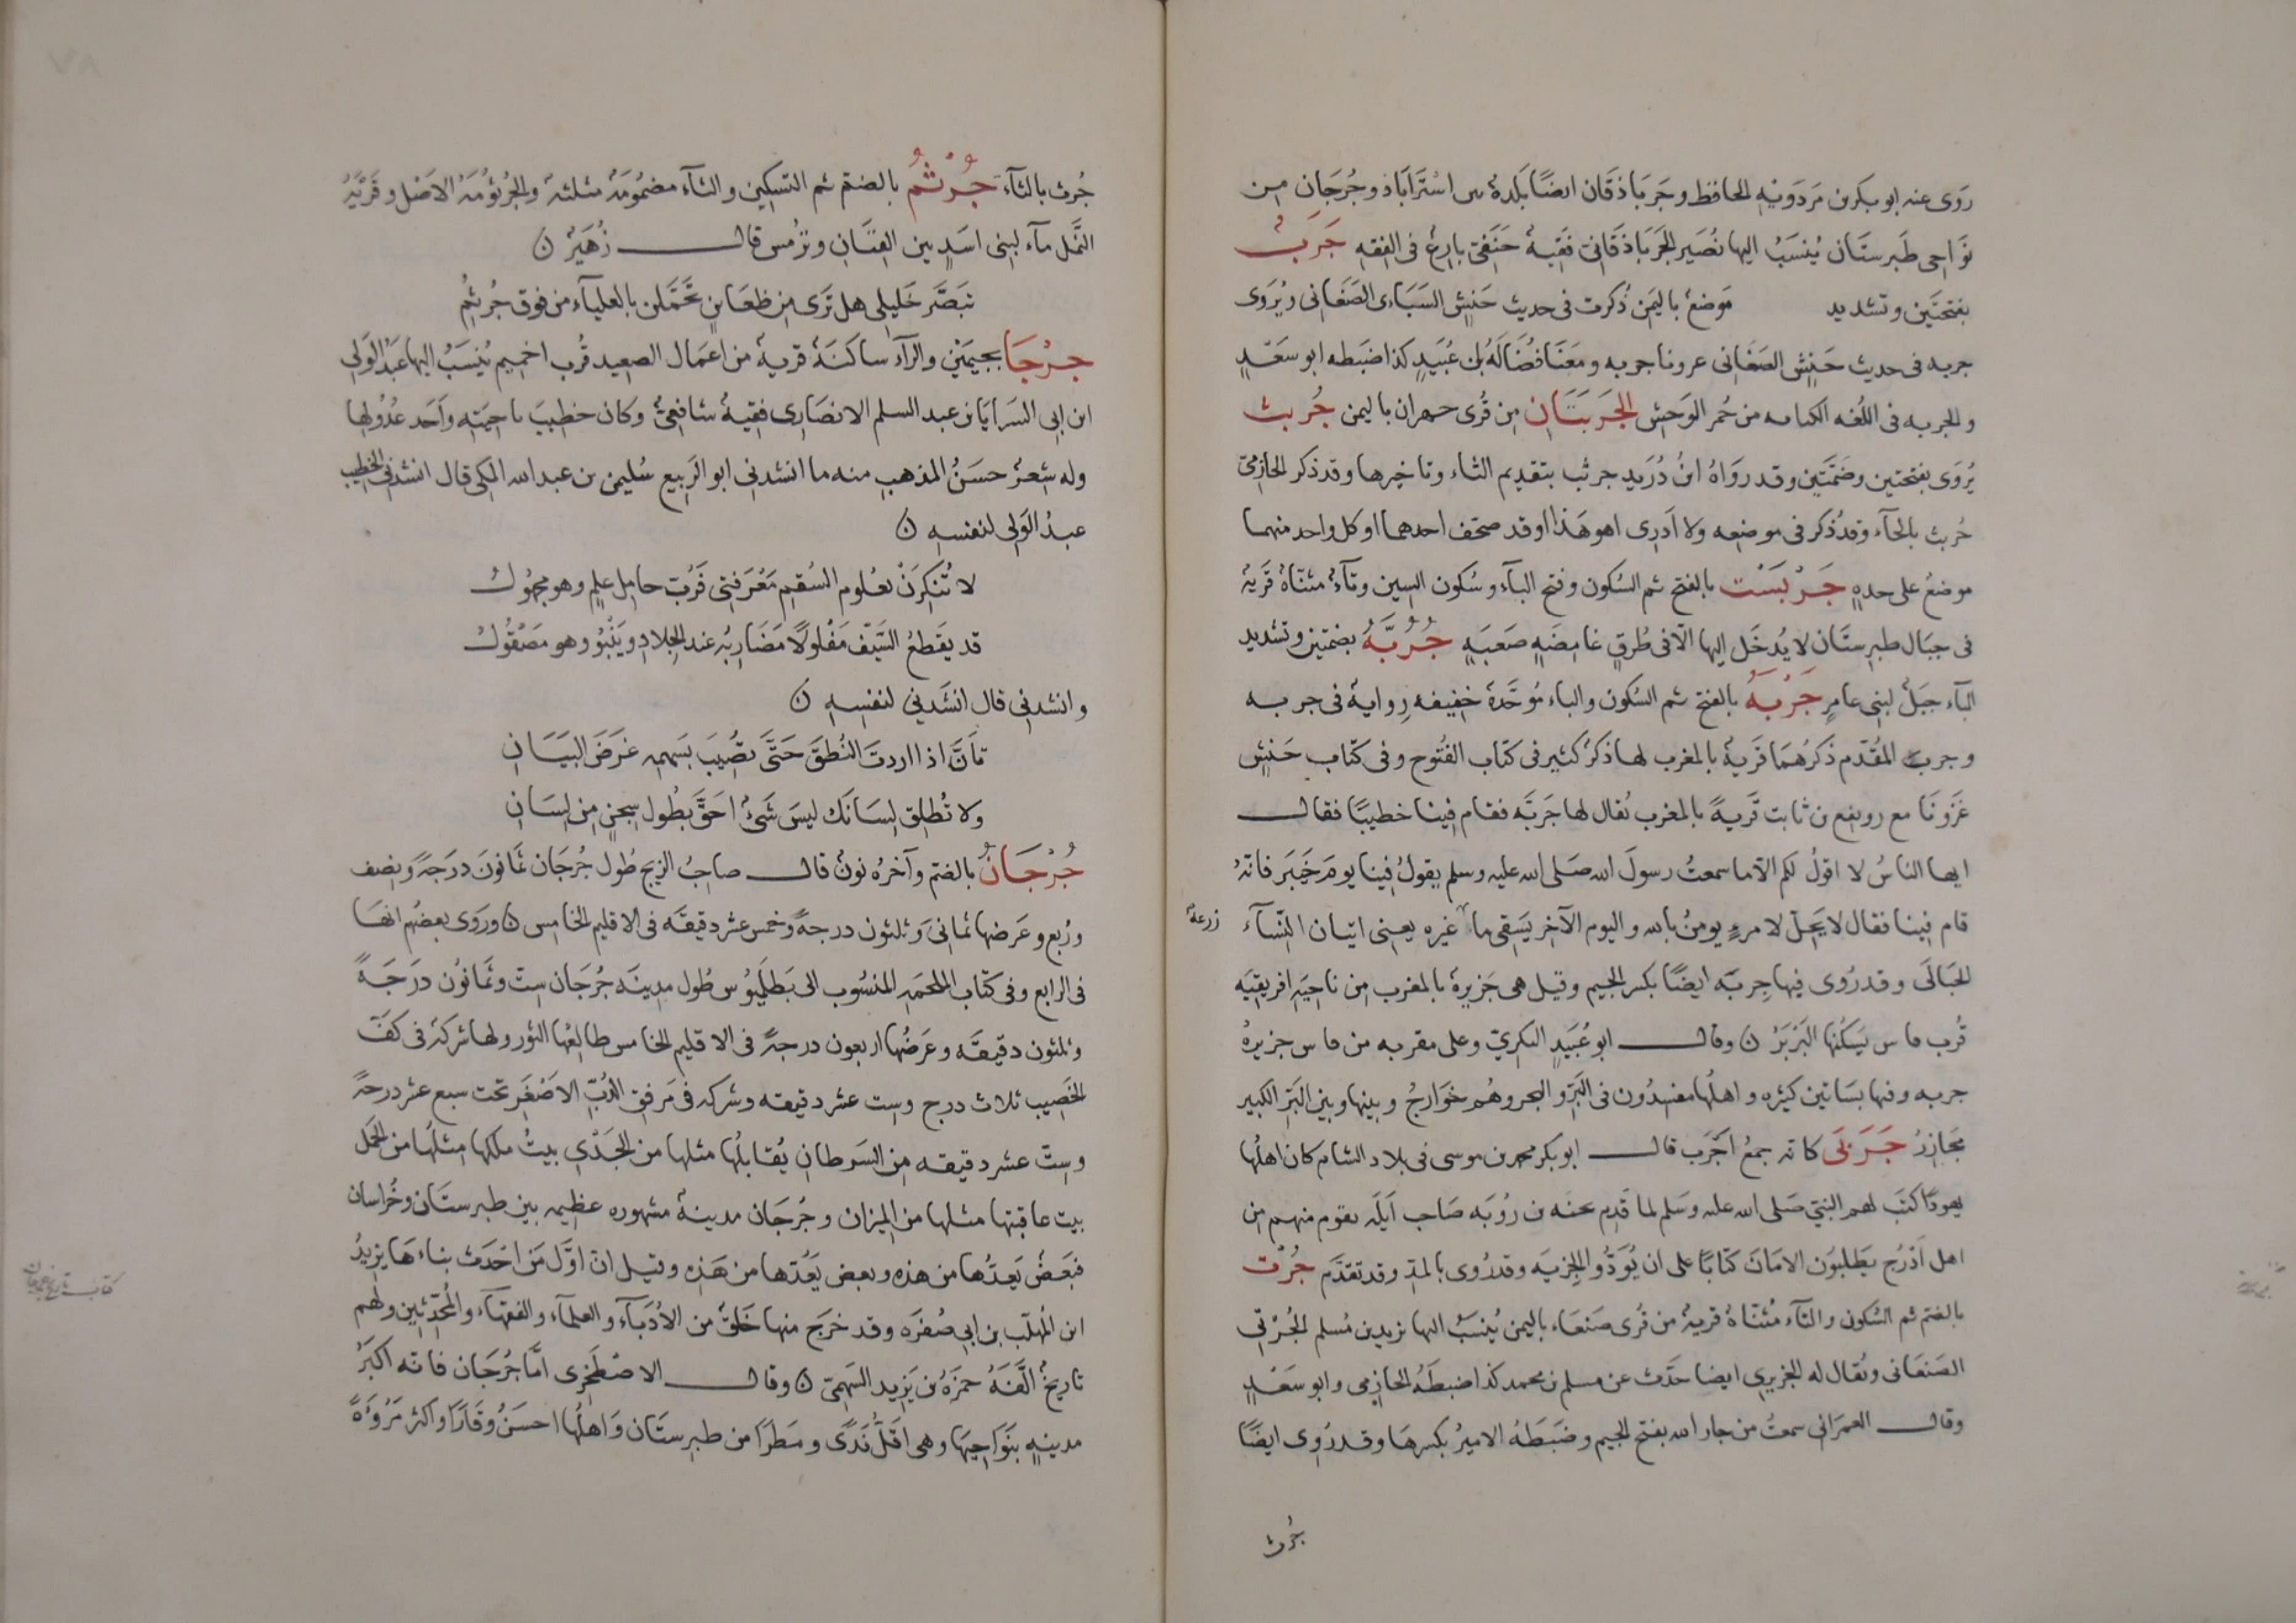 روى عنه ابو بكر بن مردويه الحافظ وجرباذقان ايضًا بلدة بين استراباذ وجرجان من
نواحى طبرستان ينسب اليها نصير الجرباذقانى فقيه حنفى بارع فى الفقه جرب
بفتحتين وتشديد موضع باليمن ذكرت فى حديث حنش السباءى الصنعانى ويروى
جربه فى حديث حنش الصنعانى غزونا جربه ومعنا فضالة بن عبيد كذا ضبطه ابو سعد
والجربه فى اللغه الكتيبه من حُمر الوحش الجربتان من قرى جهران باليمن جُربث
يُروى بفتحتين وضمتين وقد رواه ابن دريد جرثب بتقديم الثاء وتاخيرها وقد ذكر الحازمى
حُربث بالحاء وقد ذكر فى موضعه ولا ادرى اهو هذا او قد صحف احدهما او كل واحد منهما
موضع على حده جَرْبَسْت بالفتح ثم السكون وفتح الباء وسكون السين وتاء مثناة قرية
فى جبال طبرستان لا يدخل اليها الا فى طرق غامضة صعبة جُرُبَّةُ بضمتين وتشديد
الباء جبل لبنى عامر جَرْبَهُ بالفتح ثم السكون والباء موحدة خفيفه رواية فى جربه
وجربة المقدم ذكرهما قرية بالمغرب لها ذكر كثير فى كتاب الفتوح وفى كتاب حنش
غزونا مع رويفع بن ثابت قرية بالمغرب يقال لها جربَه فقام فينا خطيبًا فقال
ايها الناس لا اقول لكم الا ما سمعت رسول الله صلى الله عليه وسلم يقول فينا يوم خيبر فانه
قام فينا فقال لا يحل لامرء يومن بالله واليوم الآخر يسقى ما غيره يعنى اتيان النساء
زرعة
الحبالى وقد رُوى فيها جِربَه ايضًا بكسر الجيم وقيل هى جزيرة بالمغرب من ناحية افريقيه
قرب قابس يسكنها البربر ن وقال ابو عبيد البكرى وعلى مقربه من قابس جزيرة
جربه وفيها بساتين كثيره واهلها مفسدون فى البر والبحر وهم خوارج وبينها وبين البر الكبير
مجاز جَرْبَى كانه جمع اجرب قال ابو بكر محمد بن موسى فى بلاد الشام كان اهلها
يهودًا كتب لهم النبى صلى الله عليه وسلم لما قدم يحنه بن روبه صاحب ايله بقوم منهم من
اهل اذرح يطلبون الامان كتابًا على ان يُودُّو الجزيه وقد رُوى بالمد وقد تقدم جُرْت
بالضم ثم السكون والتاء مثناة قرية من قرى صنعاء باليمن ينسب اليها يزيد بن مسلم الجُرتى
الصنعانى ويقال له الجزيرى ايضا حدث عن مسلم بن محمد كذا ضبطه الحازمى وابو سعد
وقال العمرانى سمعت من جار الله بفتح الجيم وضبطه الامير بكسرها وقد رُوى ايضًا
جُرث
جُرث بالثاء جُرْثُمُ بالضم ثم التسكين والثاء مضمومة مثلثة والجرثومة الاصل وقرية
النمل ماء لبنى اسد بين القنان وترمس قال زهير ن
تبصَّر خليلى هل ترى من ظعاين تحملن بالعلياء من فوق جرثم
جِرْجَا بجيمين والراء ساكنة قرية من اعمال الصعيد قرب اخميم ينسب اليها عبد الولى
ابن ابى السرايا بن عبد السلم الانصارى فقيه شافعى وكان خطيب ناحيته واحد عدولها
وله شعر حسن المذهب منه ما انشدنى ابو الربيع سليمن بن عبد الله المكى قال انشدنى الخطيب
عبد الولى لنفسه ن
لا تنكرن بعلوم السقم معرفتى فرب حامل علم وهو مجهول
قد يقطع السيف مفلولًا مضاربه عند الجلاد وينبو وهو مصقول
وانشدنى قال انشدنى لنفسه ن
تأنَّ اذا اردت النطق حتى تصيب بسهم غرض البيان
ولا تطلق لسانك ليس شئ احق بطول سجن من لسان
جُرْجَانُ بالضم وآخره نون قال صاحب الزيج طول جرجان ثمانون درجة ونصف
وربع وعرضها ثمانى وثلثون درجة وخمس عشر دقيقه فى الاقليم الخامس ن وروى بعضهم انها
فى الرابع وفى كتاب الملحمه المنسوب الى بطلميوس طول مدينه جرجان ست وثمانون درجة
وثلثون دقيقه وعرضها اربعون درجة فى الاقليم الخامس طالعها الثور ولها شركة فى كف
الخضيب ثلاث درج وست عشر دقيقه وشركه فى مرفق الدب الاصغر تحت سبع عشر درجة
وست عشر دقيقه من السرطان يقابلها مثلها من الجدى بيت ملكها مثلها من الحمل
بيت عاقبتها مثلها من الميزان وجرجان مدينة مشهوره عظيمه بين طبرستان وخراسان
فبعض يعدّها من هذه وبعض يعدّها من هذه وقيل ان اول من احدث بناءها يزيد
ابن المهلب بن ابى صفره وقد خرج منها خلق من الادباء والعلماء والفقهاء والمحدثين ولهم
تاريخ الفه حمزة بن يزيد السهمى ن وقال الاصطخرى اما جرجان فانه اكبر
مدينة بنواحيها وهى اقل ندى ومطرًا من طبرستان واهلها احسن وقارًا واكثر مروءة